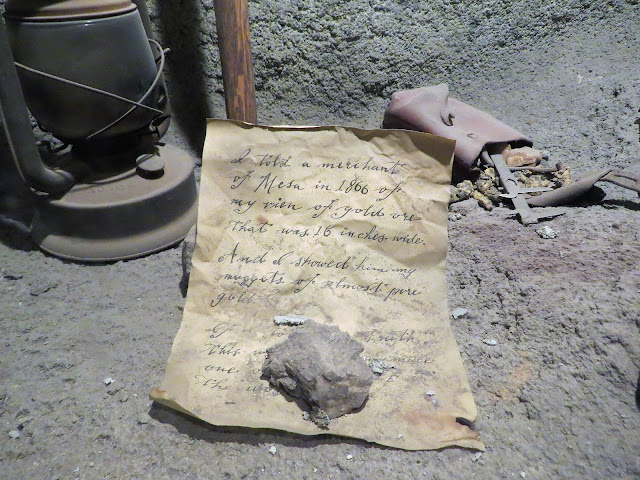 I told a merchant
of Mesa in 1866 of
my vien of gold ore
that was 16 inches wide.
And I showed him my
nuggets of almost pure
gold.
truth
This
one
the